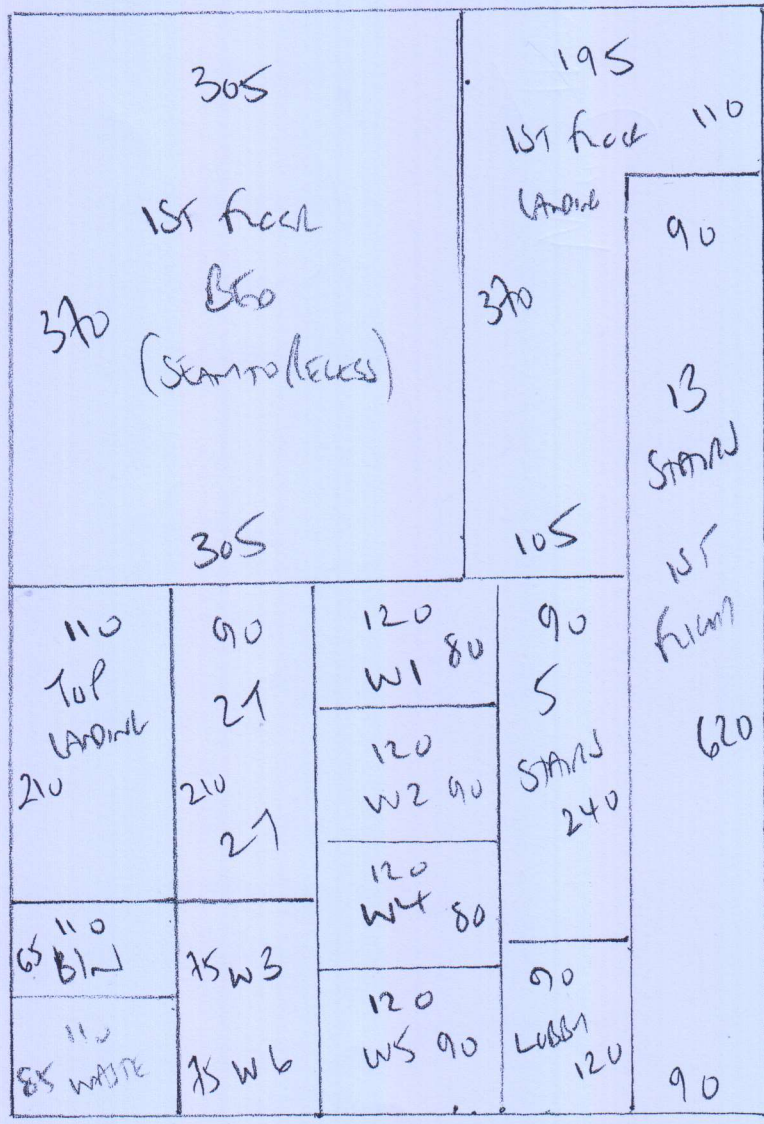 305
1ST FLOOR
BED
370
(SEAM TO RECESS)
305
195
1ST FLOOR
110
LANDING
370
105
90
13
STAIRS
1ST
FLIGHT
620
90
110
TOP
LANDING
210
90
21
210
21
120
W1 80
120
W2 90
120
W4 80
120
W5 90
90
5
STAIRS
240
90
LOBBY
120
110
65 BIN
110
85 WASTE
75 W3
75 W6